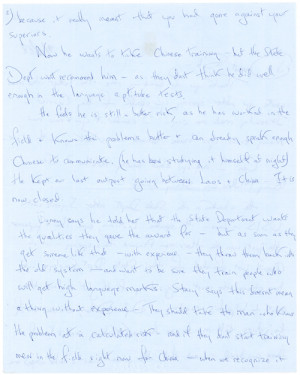 because it really meant that you had gone against your
superiors.
Now he wants to take Chinese training - but the State
Dept will recommend him - as they don't think he did well
enough in the language aptitude tests.
He feels he is still a better risk, as he has worked in the
field & knows the problems better & can already speak enough
Chinese to communicate, (he has been studying it himself at night)
He kept an last outpost going between Laos & China. It is
now closed
says he told her that the State Department wants
the qualities they gave the award for - but as soon as they
get someone like that - with experience - they throw them back into
the old system - and want to be sure they train people who
will get high language marks. Stacy says this doesn't mean
a thing without experience - They should take the man who knows
the problems at a calculated risk - and if they but start training
men in the field right now for China - when we recognize it